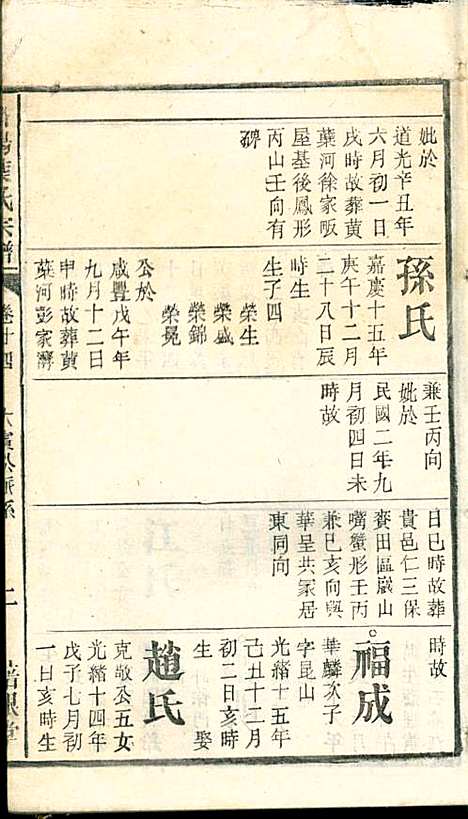 妣於
道光辛丑年
六月初一日
戌時故葬黄
葉河徐家畈
屋基後鳳形
丙山壬向有
碑
孫氏
嘉慶十五年
庚午十二月
二十八日辰
時生
生子四
榮生
榮盛
榮錦
榮冕
公於
咸豐戊午年
九月十二日
申時故葬黄
葉河彭家灣
兼壬丙向
妣於
民國二年九
月初四日未
時故
日巳時故葬
貴邑仁三保
賚田區巖山
嘴蟹形壬丙
兼巳亥向與
華呈共冢居
東同向
時故
福成
華麟次子
字昆山
光緒十五年
己丑十二月
初二日亥時
生 娶
趙氏
克敬公五女
光緒十四年
戊子七月初
一日亥時生
葉氏宗譜
卷十四
二